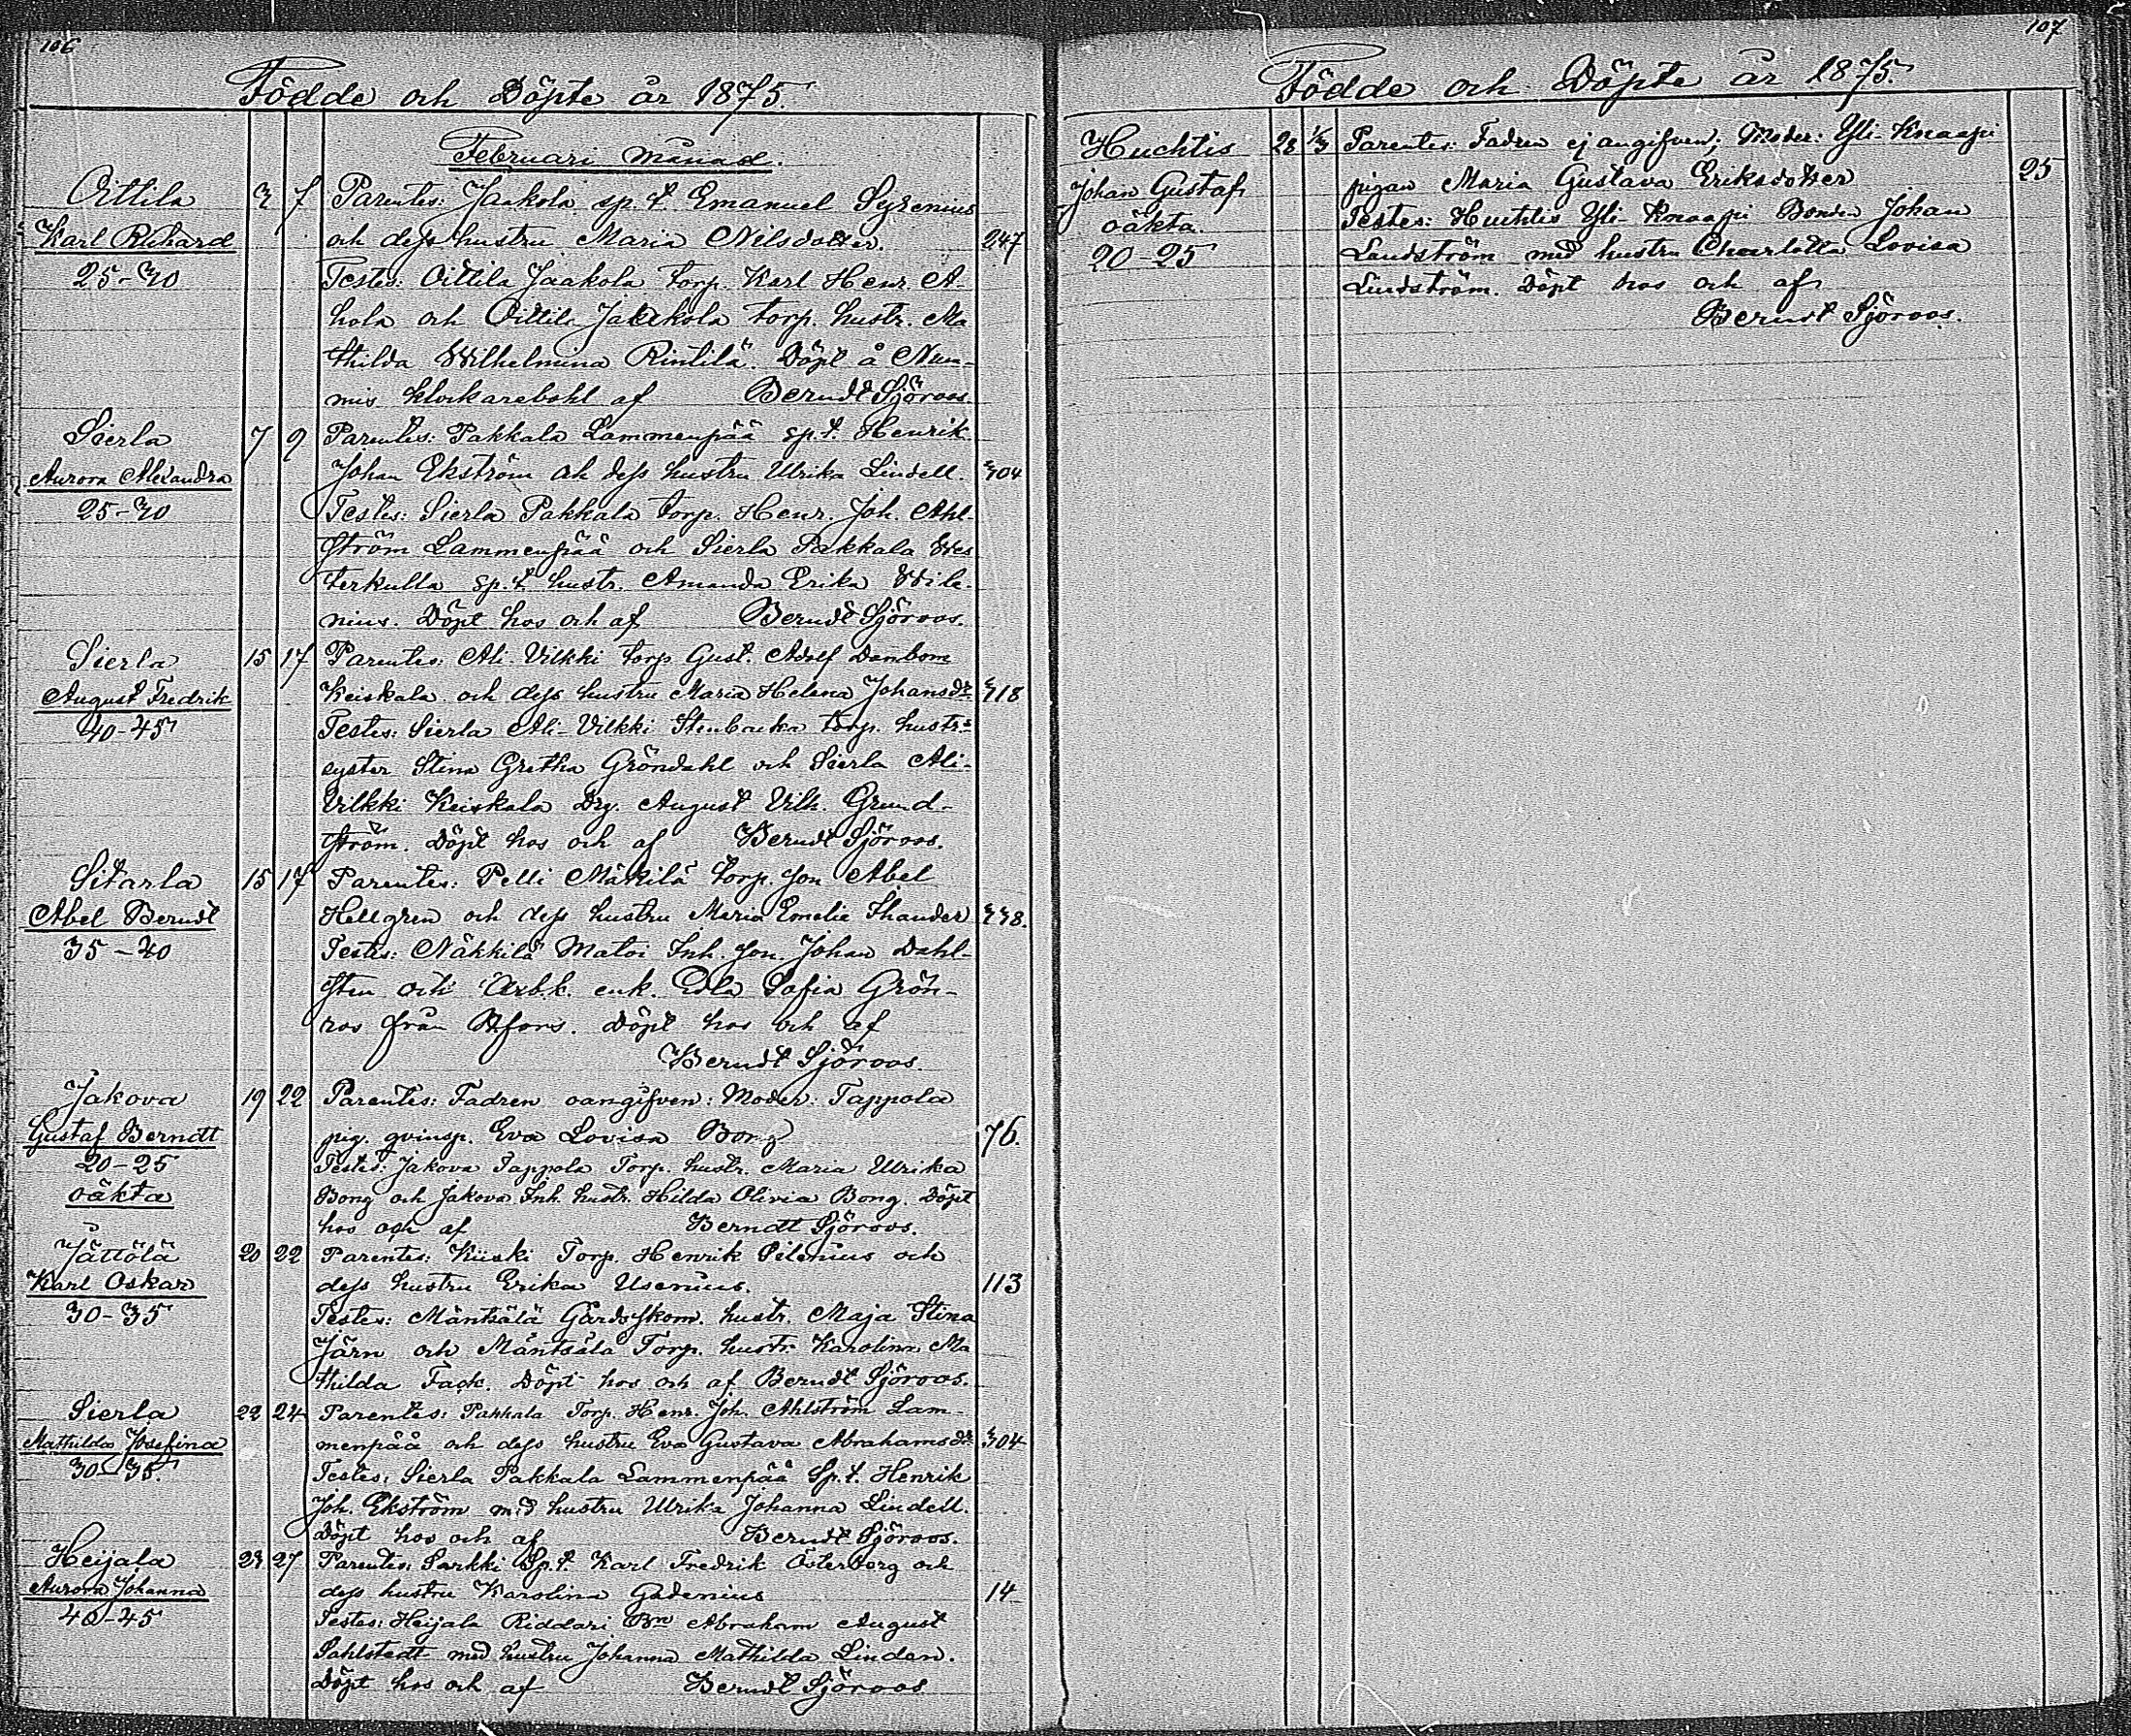 106
Födde och Döpte år 1875.
Februari Månad.
Oittila 3 7 Parentes: Jaakola sp.t. Emanuel Syrenius
Karl Richard och dess hustru Maria Nilsdotter. 247
25-30 Testes: Oittila Jaakola torp. Karl Henr. A-
hola och Oittila Jaakola torp. hustr. Ma
thilda Wilhelmina Rintilä. Döpt å Num-
mis klockarebohl af Berndt Sjöroos.
Sierla 7 9 Parentes: Pakkala Lammenpää sp.t. Henrik
Aurora Alexandra Johan Ekström och dess hustru Ulrika Lindell. 304
25-30 Testes: Sierla Pakkala torp. Henr. Joh. Ahl-
ström Lammenpää och Sierla Pakkala Wes
terkulla sp.t. hustr. Amanda Erika Wile-
nius. Döpt hos och af Berndt Sjöroos.
Sierla 15 17 Parentes: Ali-Vilkki torp. Gust. Adolf Dambom
August Fredrik Keiskala och dess hustru Maria Helena Johansdr. 318
40-45 Testes: Sierla Ali-Vilkki Stenbacka torp. hustr:s
syster Stina Gretha Gröndahl och Sierla Ali-
Vilkki Keiskala Drg. August Vilh. Grund-
ström. Döpt hos och af Berndt Sjöroos.
Sitarla 15 17 Parentes: Pelli Mäkilä torp. Jon Abel
Abel Berndt Hellgren och dess hustru Maria Emelie Thander 338.
35-40 Testes: Näkkilä Matoi Inh. Jon. Johan Dahl-
sten och Arb.k. enk. Edla Sofia Grön-
ros från Hfors. Döpt hos och af
Berndt Sjöroos.
Jakova 19 22 Parentes: Fadren oangifven: Moder: Tappola
Gustaf Berndt pig. qvinsp. Eva Lovisa Bong 76.
20-25 Testes: Jakova Tappola Torp. hustr. Maria Ulrika
oäkta Bong och Jakova Inh. hustr. Hilda Olivia Bong. Döpt
hos och af Berndt Sjöroos.
Jättölä 20 22 Parentes: Kiiski Torp. Henrik Silenius och
Karl Oskar dess hustru Erika Usenius. 113
30-35 Testes: Mäntsälä Gårdsskom. hustr. Maja Stina
Järn och Mäntsälä Torp. hustr. Karolina Ma
thilda Fack. Döpt hos och af Berndt Sjöroos.
Sierla 22 24 Parentes: Pakkala Torp. Henr. Joh. Ahlström Lam-
Mathilda Josefina menpää och dess hustru Eva Gustava Abrahamsdr. 304
30-35. Testes: Sierla Pakkala Lammenpää Sp.t. Henrik
Joh. Ekström med hustru Ulrika Johanna Lindell.
Döpt hos och af Berndt Sjöroos.
Heijala 23 27 Parentes: Sarkki Sp.t. Karl Fredrik Österborg och
Aurora Johanna dess hustru Karolina Gadenius 14
40-45 Testes: Heijala Riddari Bn Abraham August
Sahlstedt med hustru Johanna Mathilda Linden.
Döpt hos och af Berndt Sjöroos
107
Födde och Döpte år 1875.
Huchtis 28 1/3 Parentes: Fadren ej angifven; Moder: Yli-Knaapi
Johan Gustaf pigan Maria Gustava Eriksdotter 25
oäkta. Testes: Huchtis Yli-Knaapi Bonden Johan
20-25 Landström med hustru Charlotta Lovisa
Lindström. Döpt hos och af
Berndt Sjöroos.